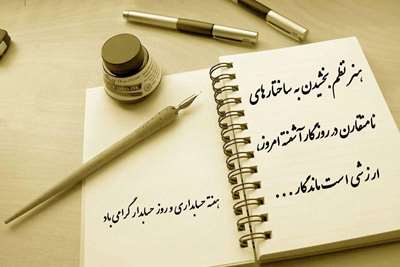 هنر نظم بخشیدن به ساختارهای
نامتقارن در روزگار آشفته امروز،
ارزشی است ماندگار ...
هفته حسابداری و روز حسابدار گرامی باد